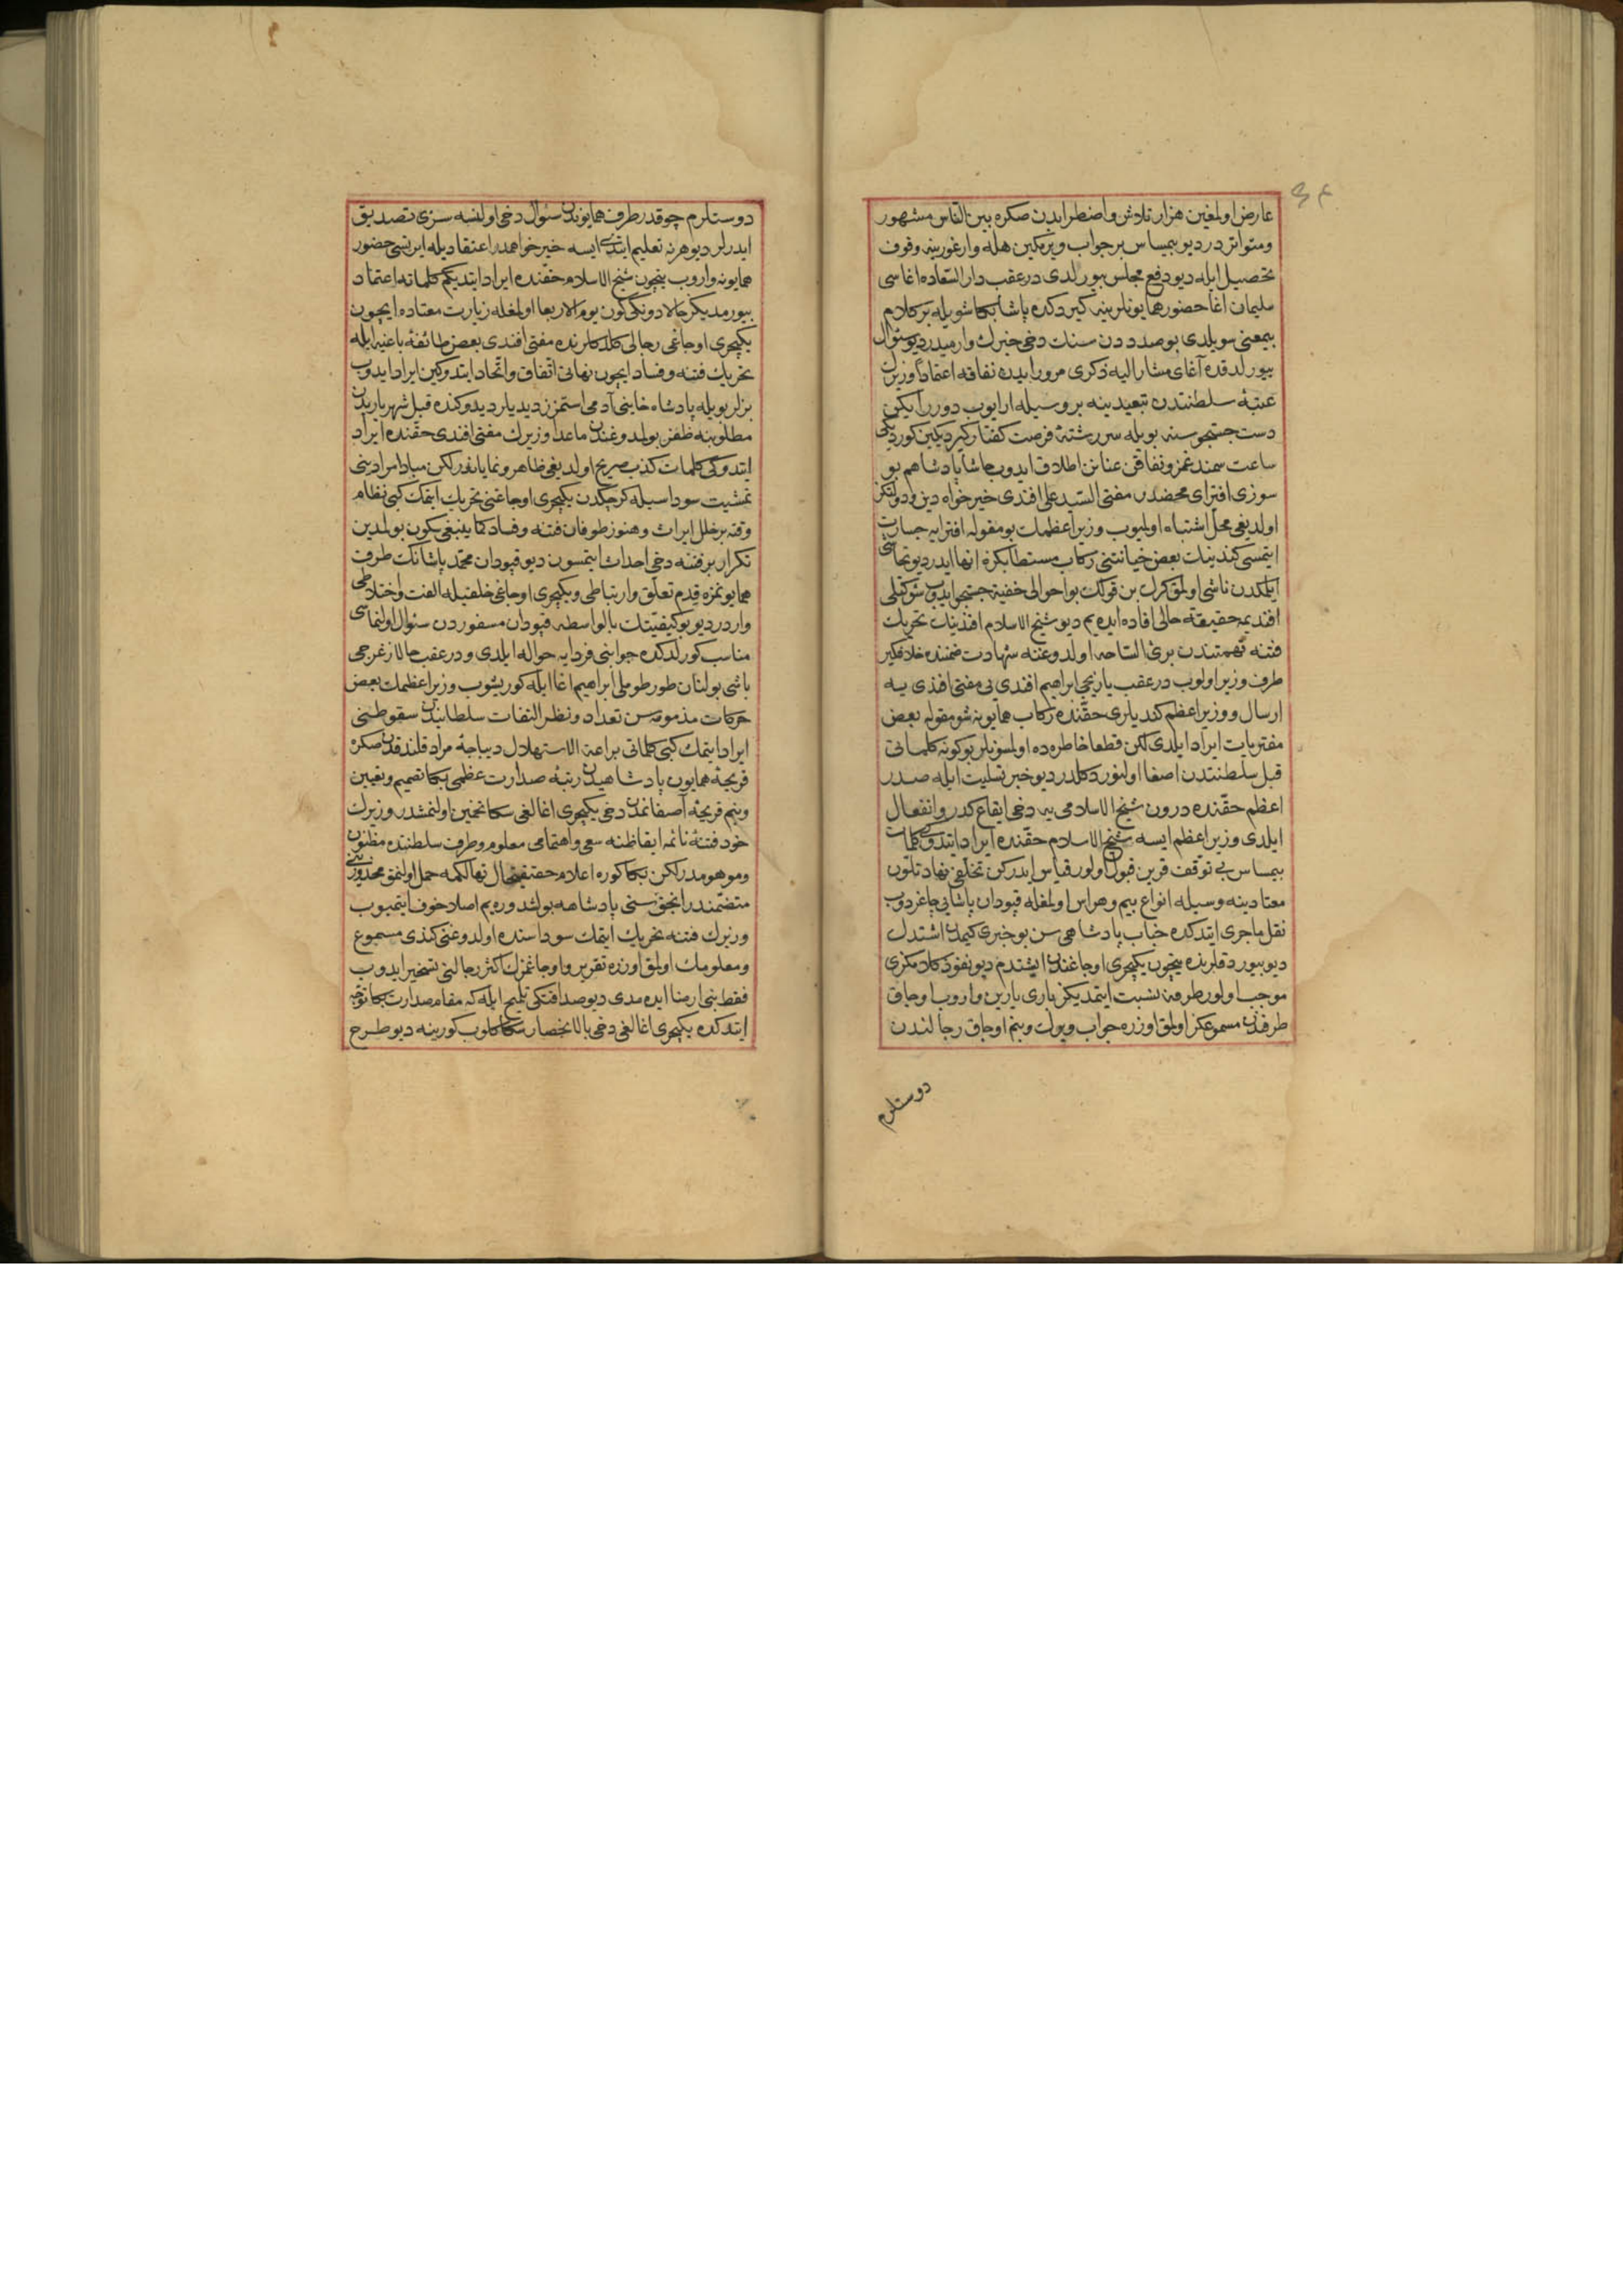 عارض اولمغين هزار تلاش واضطرابدن صكره بين الناس مشهور
ومتواتردر ديو بيمساس بر جواب ويرمكين هله وار غوربنه وقوف
تحصيل ايله ديو دفع مجلس بيورلدى درعقب دار السعاده اغاسى
سليمان اغا حضور همايونلرينه كيردكده پاشا بكا شويله بر كلام
بيمعنى سويلدى بو صددده سنك دخى خبرك وارميدر ديو سئوال
بيورلدقده آغاى مشار اليه ذكرى مرور ايدن نفاقه اعتماداً وزيرك
عتبۀ سلطنتدن تبعيدينه بر وسيله ارايوب دورر ايكن
دست جستجوسنه بويله سررشتۀ فرصت كفتار كيردكين كورديكى
ساعت سمند غمز ونفاقن عنانن اطلاق ايدوب حاشا پادشاهم بو
سوزى افتراى محضدر مفتى السيد على افندى خيرخواه دين ودولتكز
اولديغى محل اشتباه اولميوب وزير اعظمك بو مقوله افترايه جسارت
ايتمسى كندينك بعض خيانتنى ركاب مستطابكزه انها ايدر ديو تحاشى
ايلمكدن ناشى اولمق كرك بن قولك بو احوالى خفية جستجو ايدوب شوكتلى
افنديمه حقيقة حالى افاده ايده يم ديو شيخ الاسلام افندينك تحريك
فتنه تهمتندن برئ الساحه اولدوغنه شهادت ضمننده خلافكير
طرف وزير اولوب درعقب يازيجى ابراهيم افندى يى مفتى افندى يه
ارسال و وزير اعظم كنديلرى حقنده ركاب همايونه شو مقوله بعض
مفتريات ايراد ايلدى لكن قطعا خاطرده اولمسونلر بو كونه كلماتى
قبل سلطنتدن اصغا اولنور دكلدر ديو خبر تسليت ايله صدر
اعظم حقنده درون شيخ الاسلامى يه دخى ايقاع كدر وانفعال
ايلدى وزير اعظم ايسه شيخ الاسلام حقنده ايراد ايتدوكى كلمات
بيمساس بى توقف قرين قبول اولور قياس ايدركن تخلفى نهاد تلون
معتادينه وسيله انواع بيم وهراس اولمغله قپودان پاشايى چاغردوب
نقل ماجرى ايتدكده جناب پادشاهى سن بو خبرى كيمدن اشتدك
ديو بيوردقلرنده نيچون يكيچرى اوجاغندن ايشتدم ديو نفوذ كلامكزى
موجب اولور طرفه نسبت ايتمديكز بارى يارين واروب اوجاق
طرفندن مسموعكز اولمق اوزره جواب ويرك وبنم اوجاق رجالندن
دوستلرم
دوستلرم چوقدر طرف همايوندن سئوال دخى اولنسه سزى تصديق
ايدرلر ديو هر نه تعليم ايتدى ايسه خيرخواهمدر اعتقاديله ايرتسى حضور
همايونه واروب نيچون شيخ الاسلام حقنده ايراد ايتديكم كلماته اعتماد
بيورمديكز حالا دونكى كون يوم الاربعا اولمغله زيارت معتاده ايچون
يكيچرى اوجاغى رجالى كلدكلرنده مفتى افندى بعض طائفۀ باغيه ايله
تحريك فتنه وفساد ايچون نهانى اتفاق واتحاد ايتدوكين ايراد ايدوب
بزلر بويله پادشاه خاينى آدمى استمزز ديديلر ديدوكنده قبل شهرياريدن
مطلوبنه ظفر بولمدوغندن ماعدا وزيرك مفتى افندى حقنده ايراد
ايتدوكى كلمات كذب صريح اولديغى ظاهر ونماياندر لكن مبادا مرادينى
تمشيت سوداسيله كرچكدن يكيچرى اوجاغنى تحريك ايتمك كبى نظام
وقته بر خلل ايراث وهنوز طوفان فتنه وفساد كما ينبغى سكون بولمدين
تكرار بر فتنه دخى احداث ايتمسون ديو قپودان محمد پاشانك طرف
همايونمزه قدم تعلق وارتباطى ويكيچرى اوجاغى خلقيله الفت واختلاطى
واردر ديو بو كيفيتك بالواسطه قپودان مسفوردن سئوال اولنماسى
مناسب كورلدكده جوابنى فردايه حواله ايلدى و درعقب حالا زغرجى
باشى بولنان طورطوملى ابراهيم اغا ايله كوريشوب وزير اعظمك بعض
حركات مذمومه سن تعداد ونظر التفات سلطانيدن سقوطنى
ايراد ايتمك كبى كلماتى براعة الاستهلال ديباجۀ مراد قلندقدن صكره
قريحۀ همايون پادشاهيدن رتبۀ صدارت عظمى بكا تصميم وتعيين
وبنم قريحۀ آصفانمدن دخى يكيچرى اغالغى سكا تخمين اولنمشدر وزيرك
خود فتنۀ نائمه ايقاظنه سعى واهتمامى معلوم وطرف سلطنتده مظنون
وموهومدر لكن بكا كوره اعلام حقيقتحال تهالكمه حمل اولنمق محذورينى
متضمندر انجق سنى پادشاهمه بولشدوره يم اصلا خوف ايتميوب
وزيرك فتنه تحريك ايتمك سوداسنده اولدوغنى كندى مسموع
ومعلومك اولمق اوزره تقرير واوجاغمزك اكثر رجالنى تسخير ايدوب
فقط بنى ارضا ايده مدى ديو صداقتكى تلميح ايله كه مقام صدارت بكا توجه
ايتدكده يكيچرى اغالغى دخى بالانحصار سكا كلوب كورينه ديو طرح